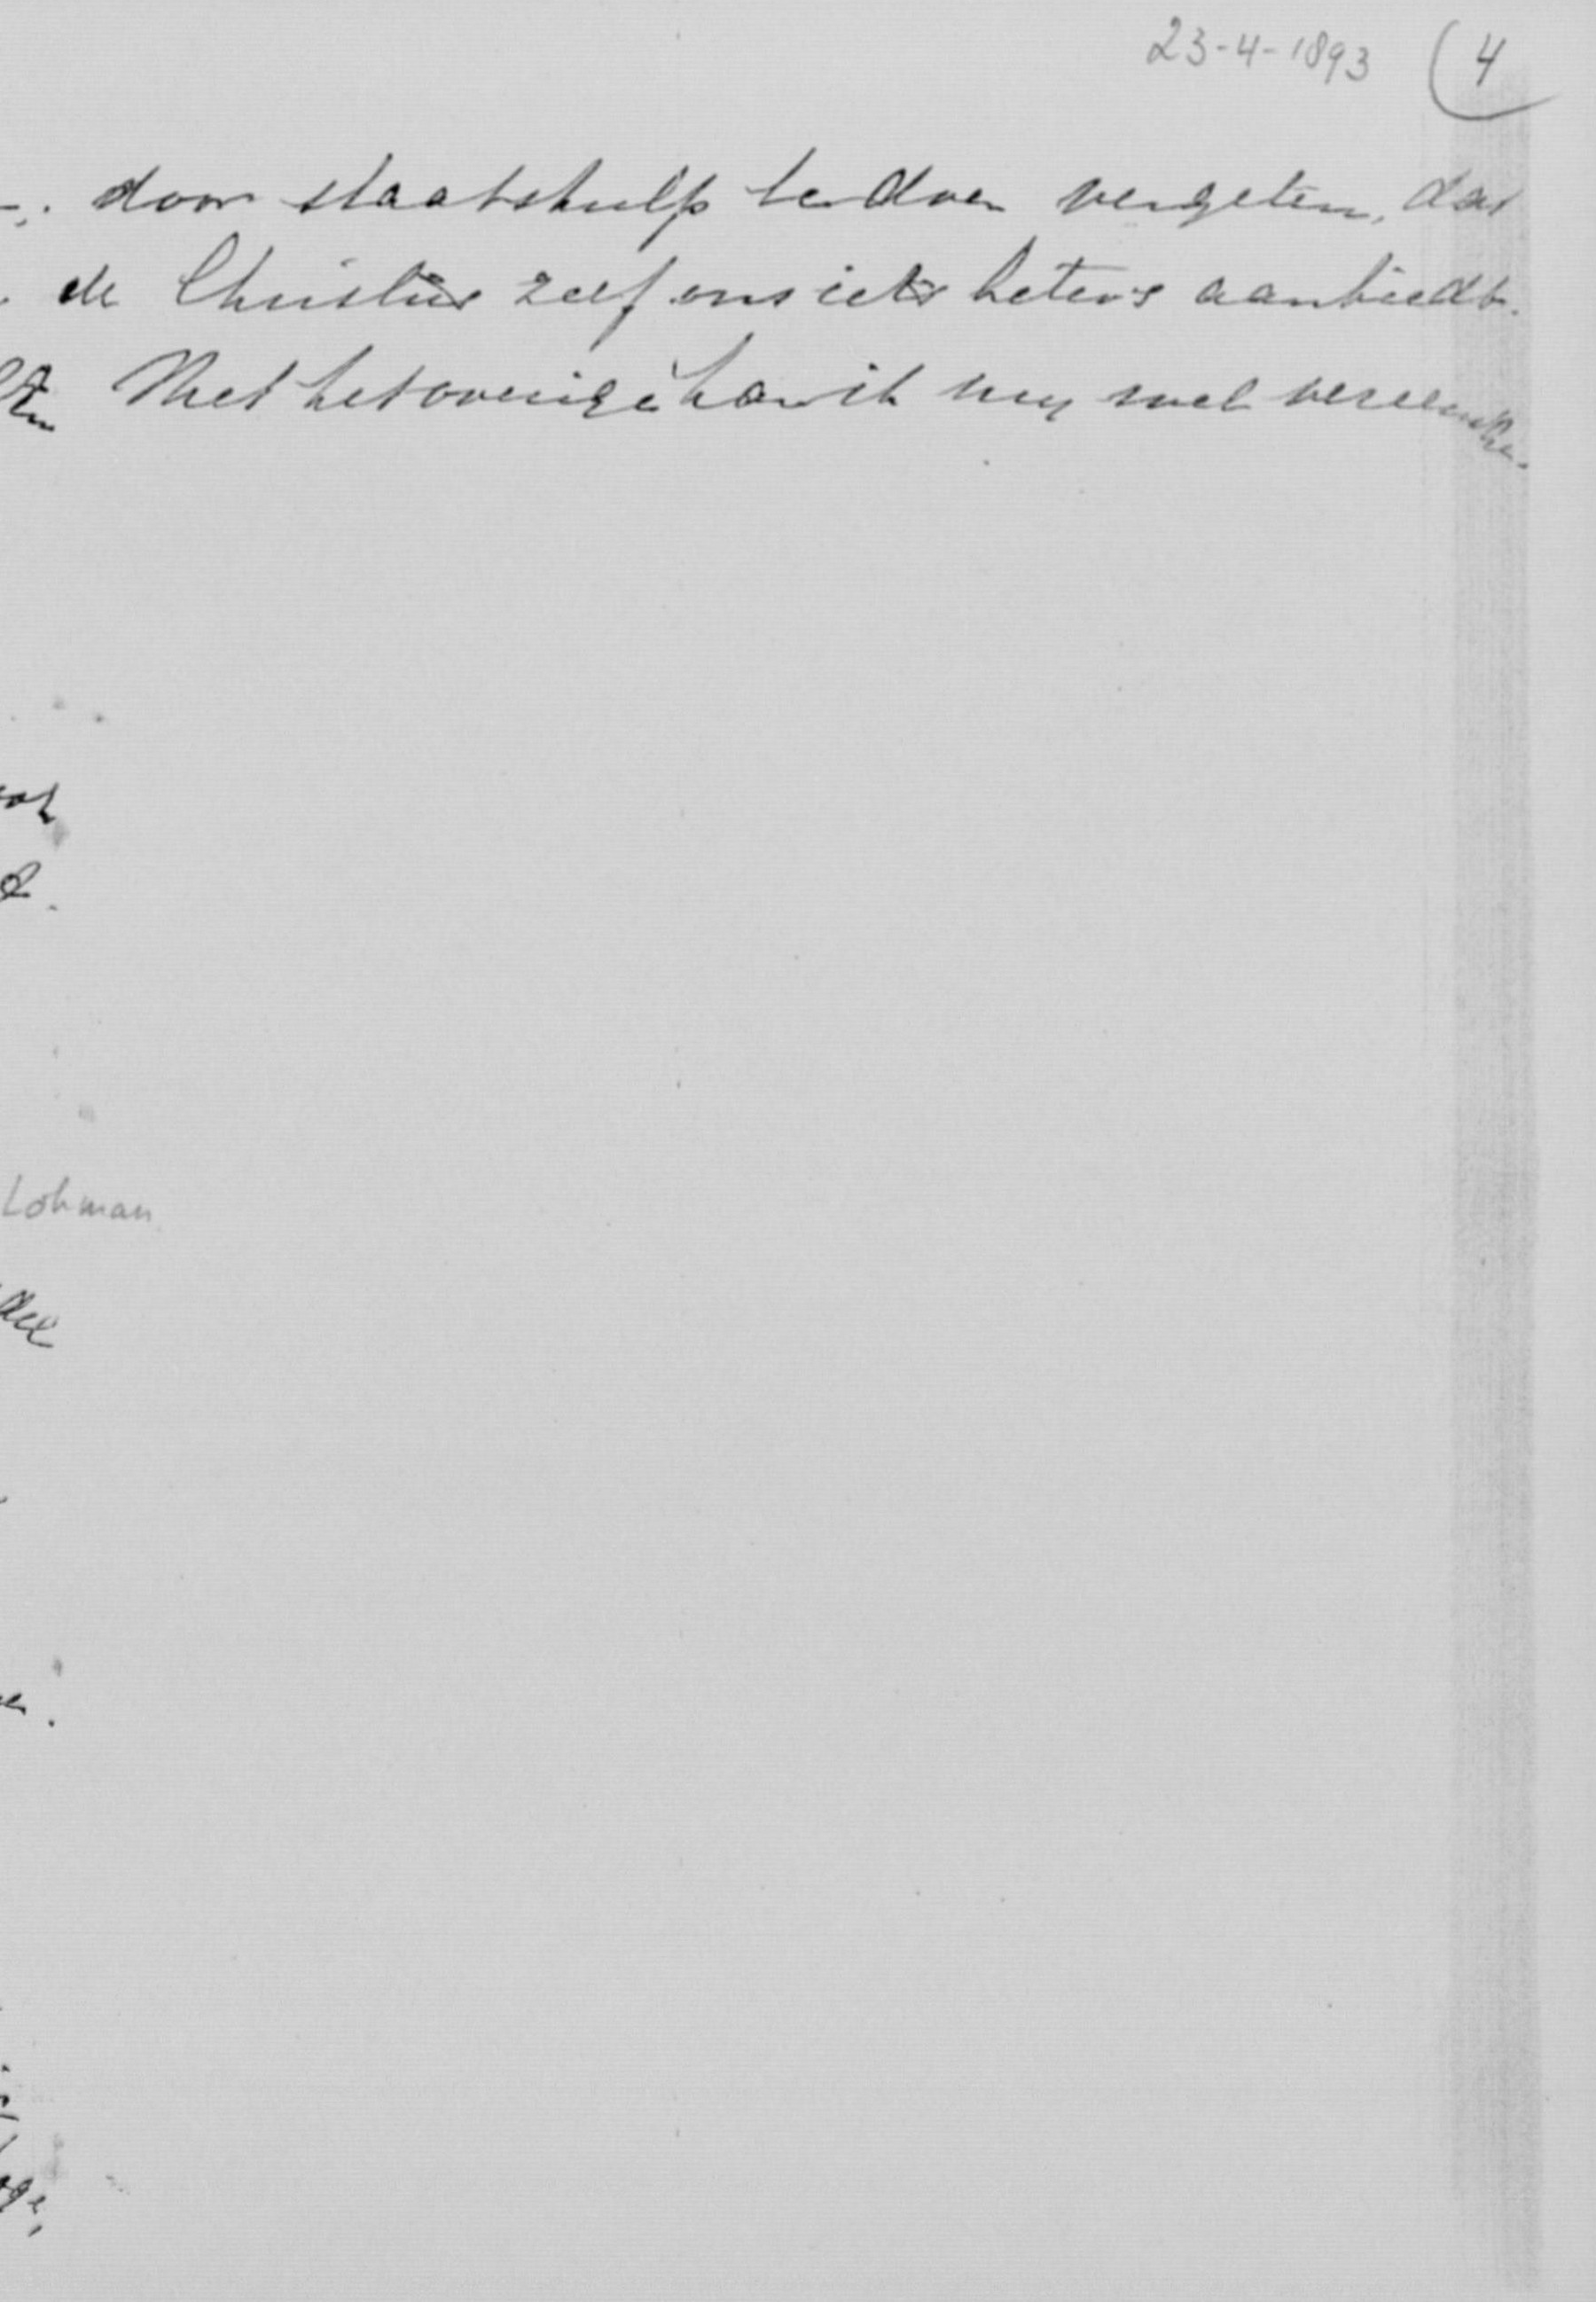 23-4-1893 4
door staatshulp te doen vergeten, dat
de Christus zelf ons iets beters aanbiedt.
Met het overige kan ik my wel vereenigen.
Lohman